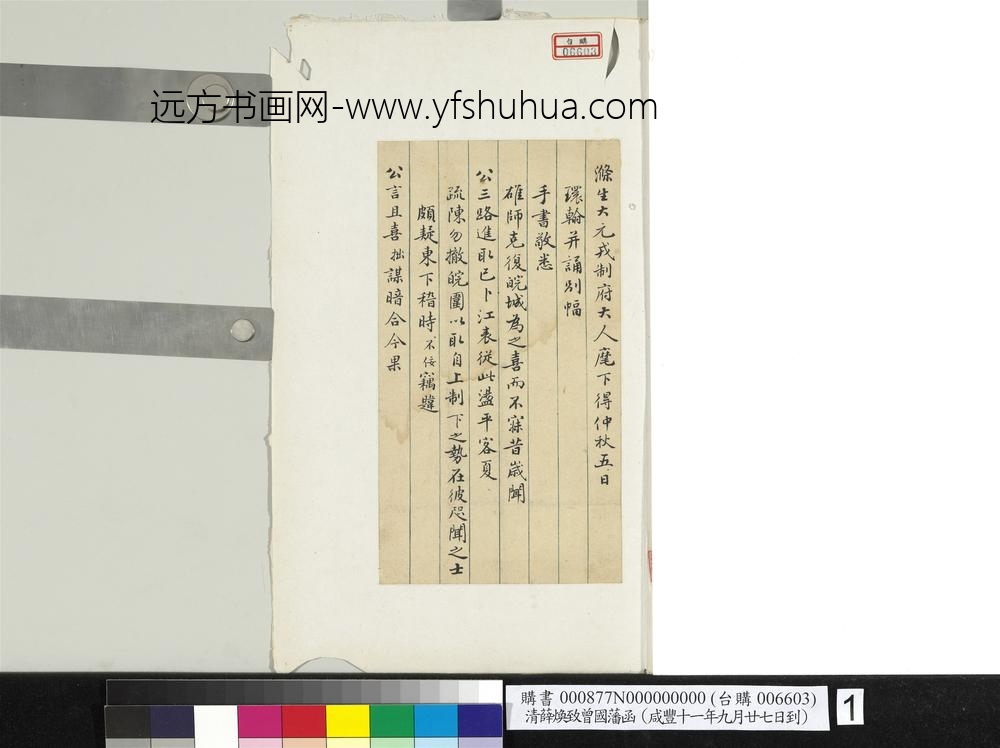 台購
006603
远方书画网-www.yfshuhua.com
滌生大元戎制府大人麾下得仲秋五日
環翰并誦別幅
手書敬悉
雄師克復皖城為之喜而不寐昔歲聞
公三路進取已卜江表從此盪平客夏
疏陳勿撤皖圍以取自上制下之勢在彼咫聞之士
頗疑東下稽時不佞竊韙
公言且喜拙謀暗合今果
購書 000877N000000000 (台購 006603)
清薛煥致曾國藩函（咸豐十一年九月廿七日到）
1